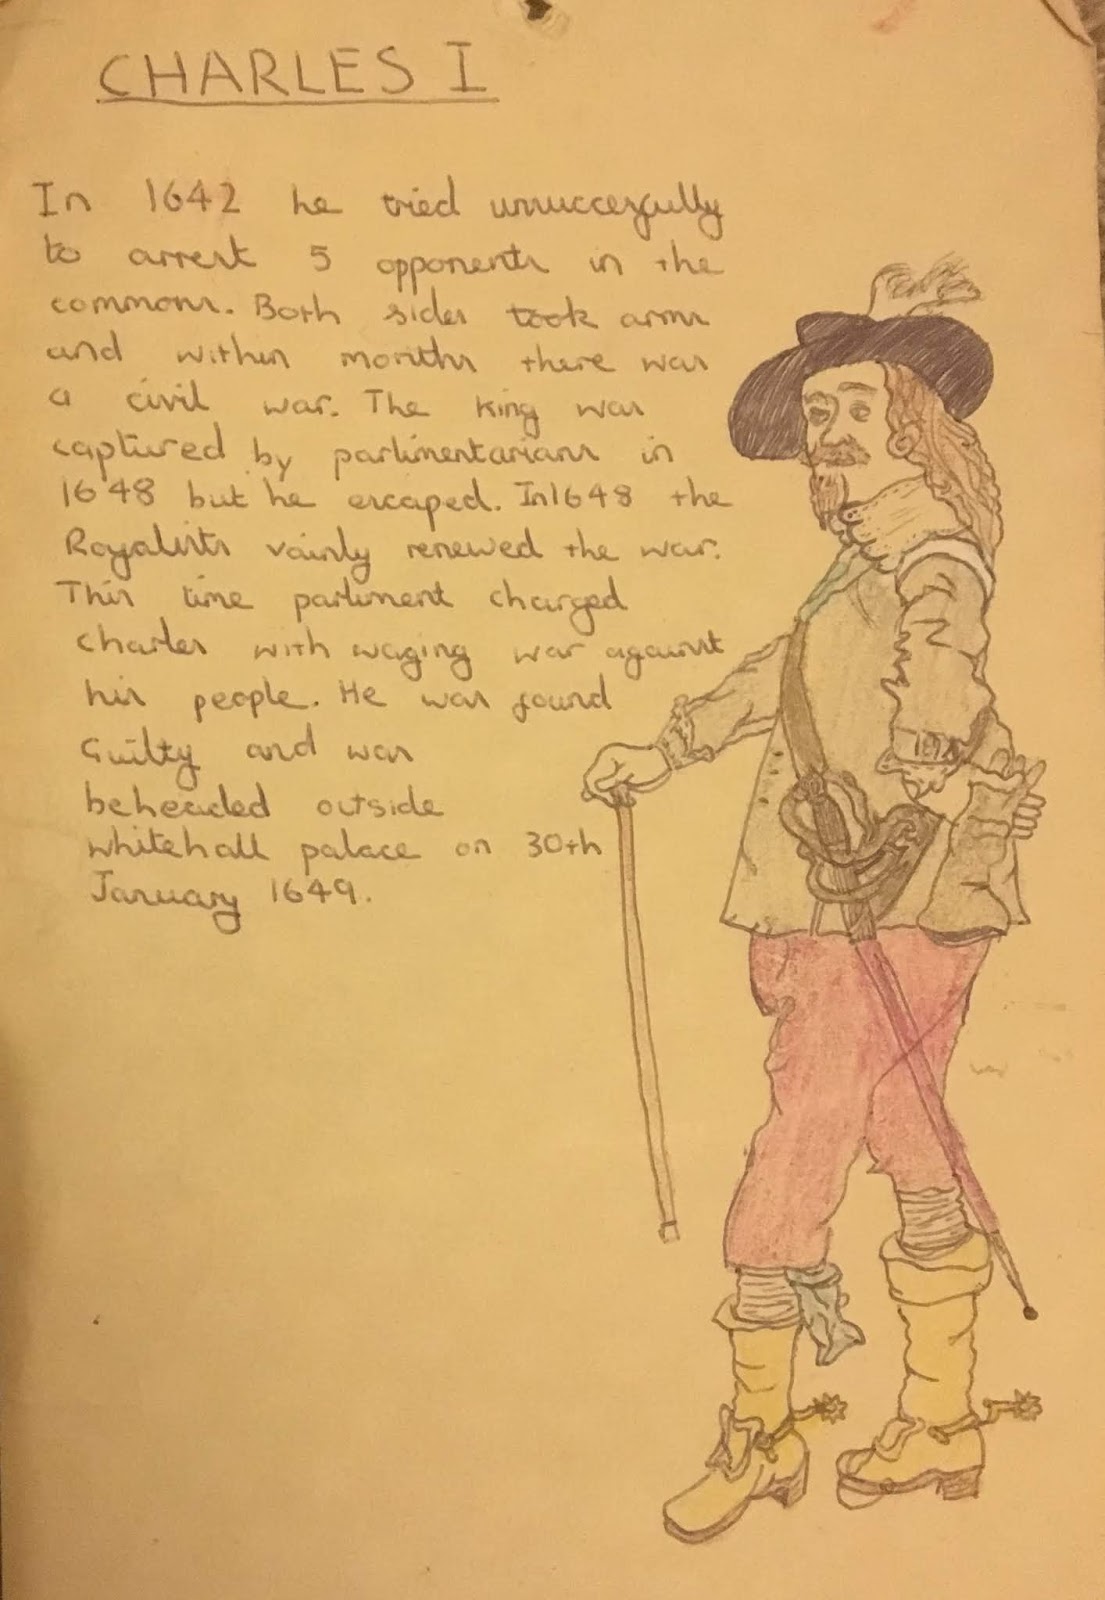 CHARLES I
In 1642 he tried unsuccesfully
to arrest 5 opponents in the
commons. Both sides took arms
and within months there was
a civil war. The King was
captured by parlimentarians in
1648 but he escaped. In 1648 the
Royalists vainly renewed the war.
This time parliment charged
Charles with waging war against
his people. He was found
Guilty and was
beheaded outside
whitehall palace on 30th
January 1649.